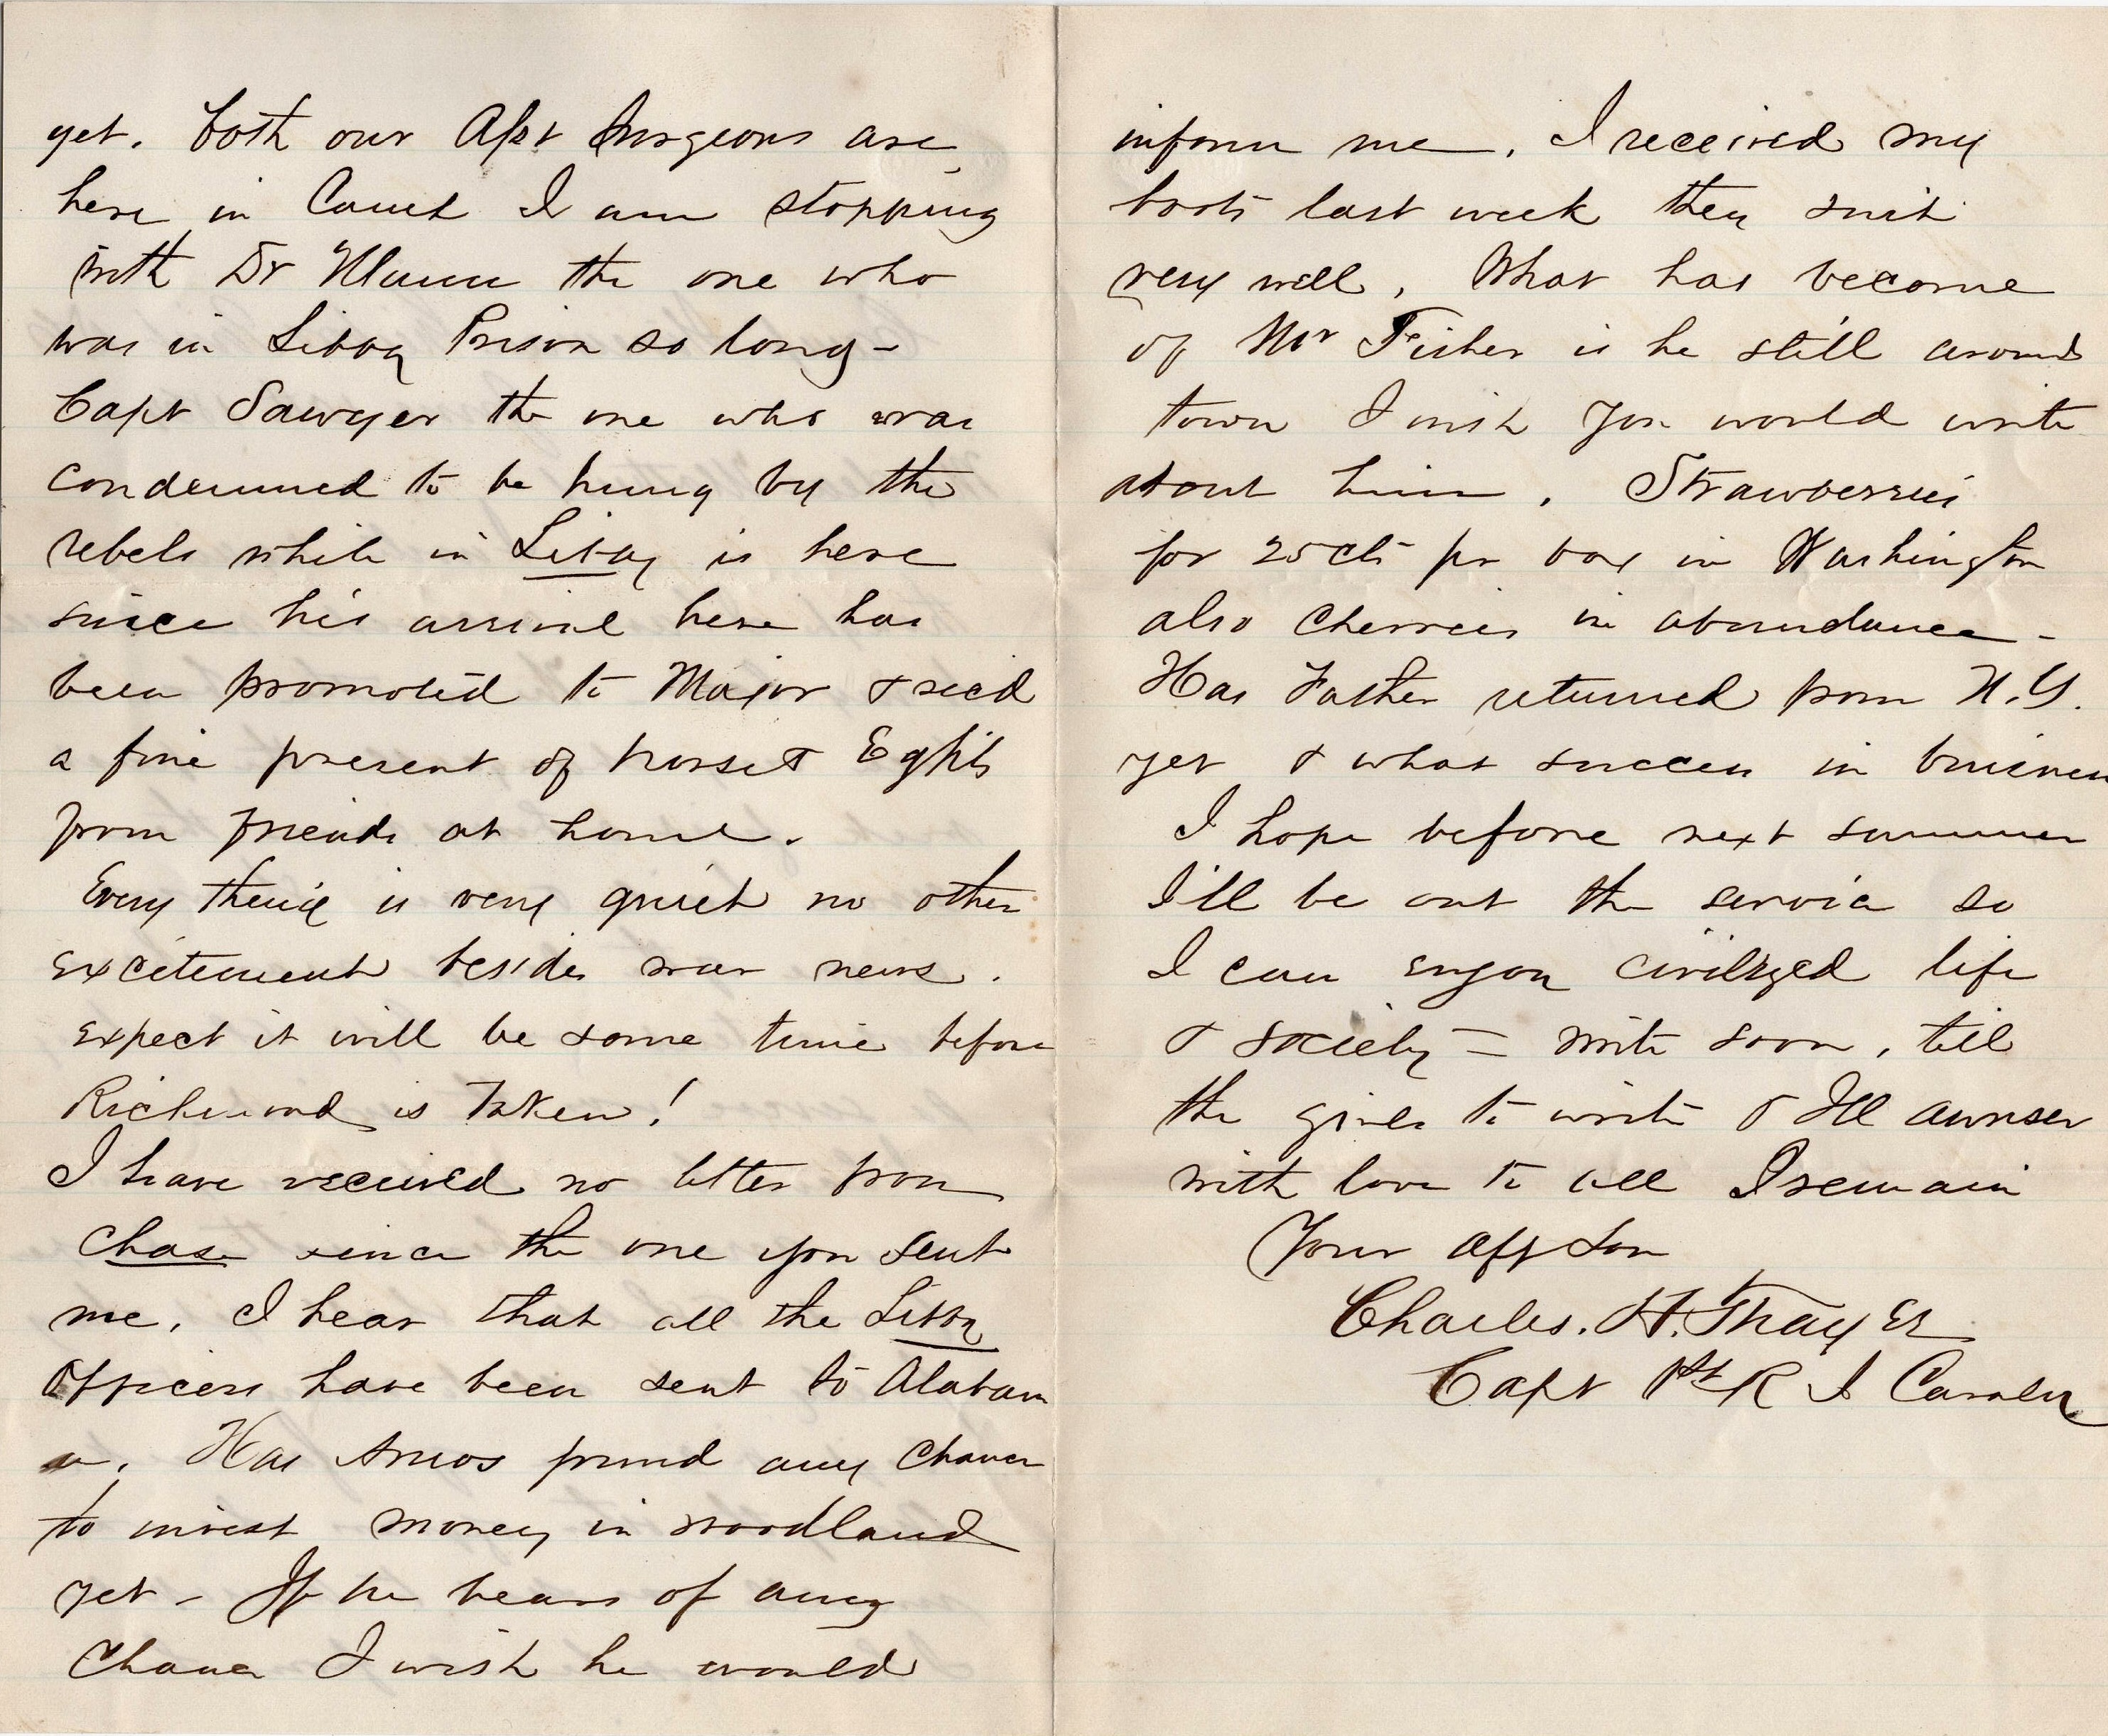 yet. Both our Asst Surgeons are
here in Camp I am stopping
with Dr Mann the one who
was in Libby Prison so long -
Capt Sawyer the one who was
condemned to be hung by the
rebels while in Libby is here
since his arrival here has
been promoted to Major & rec'd
a fine present of horse & Eqpts
from friends at home.
Every thing is very quiet no other
excitement besides war news.
expect it will be some time before
Richmond is Taken!
I have received no letter from
Chase since the one you sent
me. I hear that all the Libby
Officers have been sent to Alabam
a. Has Amos found any chance
to invest money in woodland
yet - If he hears of any
chance I wish he would
inform me. I received my
boots last week they suit
very well. What has become
of Mr Fisher is he still around
town I wish you would write
about him. Strawberries
for 25 cts pr box in Washington
also cherries in abundance -
Has Father returned from N.Y.
yet & what success in business
I hope before next summer
I'll be out the service so
I can enjoy civilized life
& society = write soon, tell
the girls to write & Ill awnser
with love to all I remain
Your aff son
Charles. H. Thayer
Capt 1st R I Cavalry